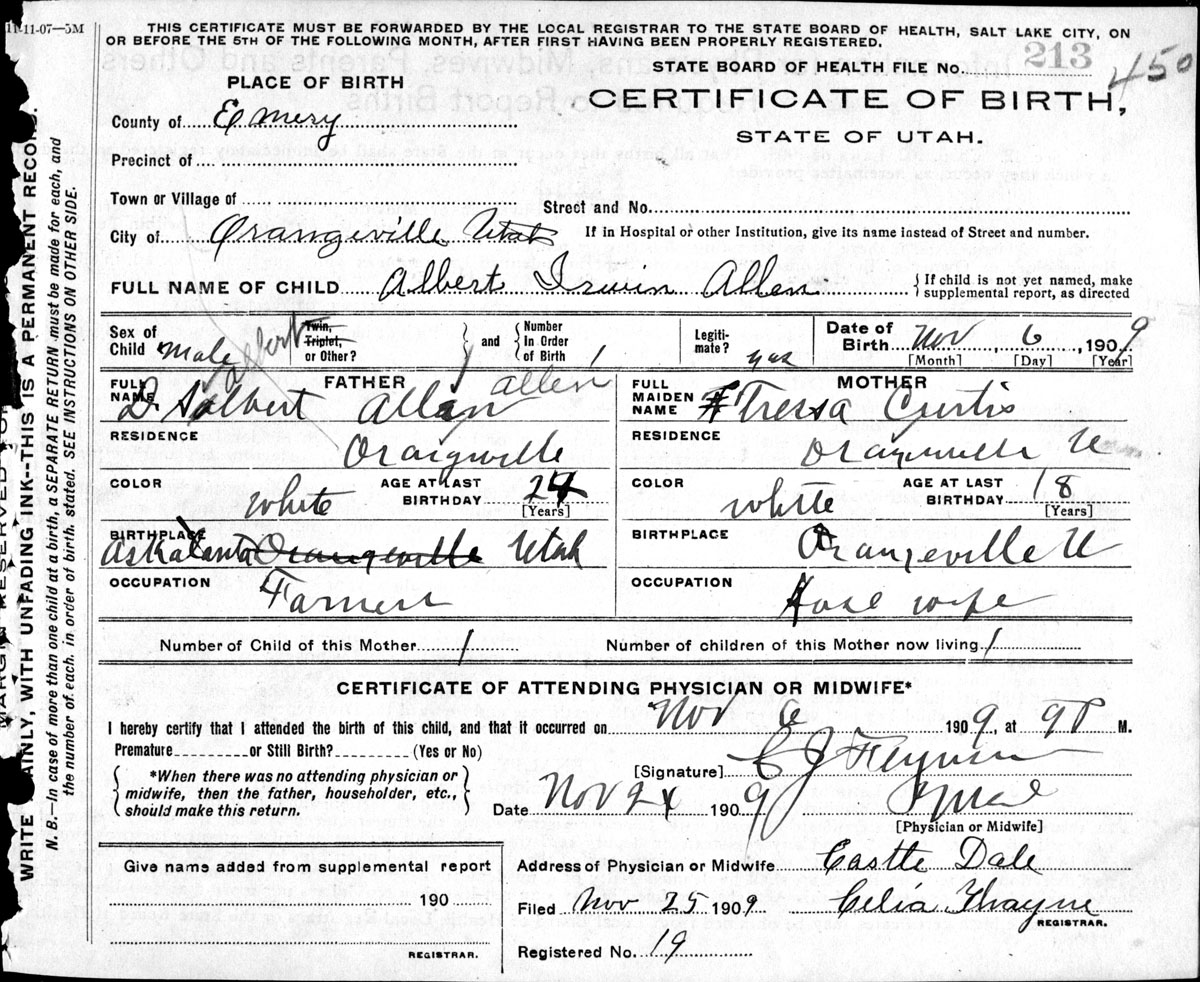 11-11-07—5M
THIS CERTIFICATE MUST BE FORWARDED BY THE LOCAL REGISTRAR TO THE STATE BOARD OF HEALTH, SALT LAKE CITY, ON
OR BEFORE THE 5TH OF THE FOLLOWING MONTH, AFTER FIRST HAVING BEEN PROPERLY REGISTERED.
STATE BOARD OF HEALTH FILE No. 213 450
PLACE OF BIRTH
CERTIFICATE OF BIRTH,
STATE OF UTAH.
County of Emery
Precinct of
Town or Village of
Street and No.
City of Orangeville Utah
If in Hospital or other Institution, give its name instead of Street and number.
FULL NAME OF CHILD Albert Irwin Allen
{ If child is not yet named, make
supplemental report, as directed
Sex of Child Male
Twin, Triplet, or Other?
} and { Number In Order of Birth 1
Legiti-mate? yes
Date of Birth Nov 6, 1909
[Month] [Day] [Year]
FULL NAME FATHER
Albert Allen
D. Albert Allen
FULL MAIDEN NAME MOTHER
Tressa Curtis
RESIDENCE Oraigville
RESIDENCE Orangeville U
COLOR White
AGE AT LAST BIRTHDAY 24
[Years]
COLOR White
AGE AT LAST BIRTHDAY 18
[Years]
BIRTHPLACE Askalanta Orangeville Utah
BIRTHPLACE Orangeville U
OCCUPATION Farmer
OCCUPATION House wife
Number of Child of this Mother 1
Number of children of this Mother now living 1
CERTIFICATE OF ATTENDING PHYSICIAN OR MIDWIFE*
I hereby certify that I attended the birth of this child, and that it occurred on Nov 6 1909, at 9 P M.
Premature or Still Birth? (Yes or No)
{ *When there was no attending physician or
midwife, then the father, householder, etc.,
should make this return. }
[Signature] C J
Date Nov 24 1909
[Physician or Midwife]
Give name added from supplemental report
190
REGISTRAR.
Address of Physician or Midwife Castle Dale
Filed Nov 25 1909 Celia Thayne
REGISTRAR.
Registered No. 19
MARGIN RESERVED FOR
WRITE PLAINLY, WITH UNFADING INK--THIS IS A PERMANENT RECORD.
N. B.—In case of more than one child at a birth, a SEPARATE RETURN must be made for each, and
the number of each, in order of birth, stated. SEE INSTRUCTIONS ON OTHER SIDE.